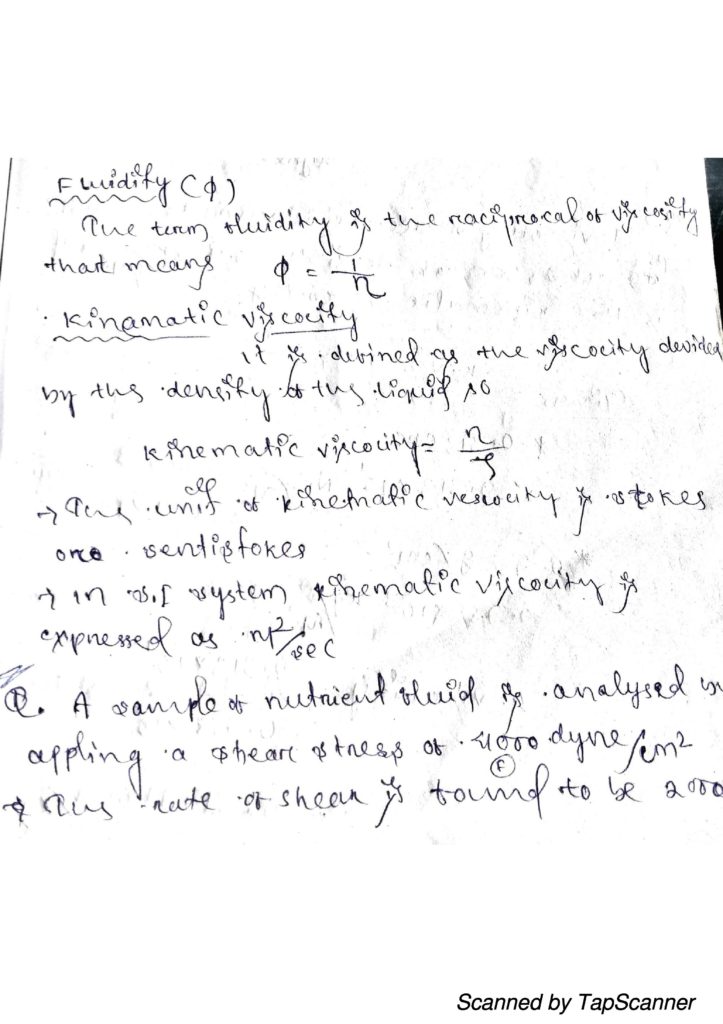 Fluidity (ϕ)
The term fluidity is the raciprocal of viscosity
that means ϕ = 1/η
· Kinamatic viscocity
it is defined as the viscocity devided
by the density of the liquid so
Kinematic viscocity = η/ρ
→ The unit of kinematic vescocity is stokes
ore sentistokes
→ in S.I system kinematic viscocity is
expressed as m²/sec
Q. A sample of nutrient fluid is analysed
appling a shear stress of 4000 dyne/cm²
& The rate of shear is found to be 2000
Scanned by TapScanner